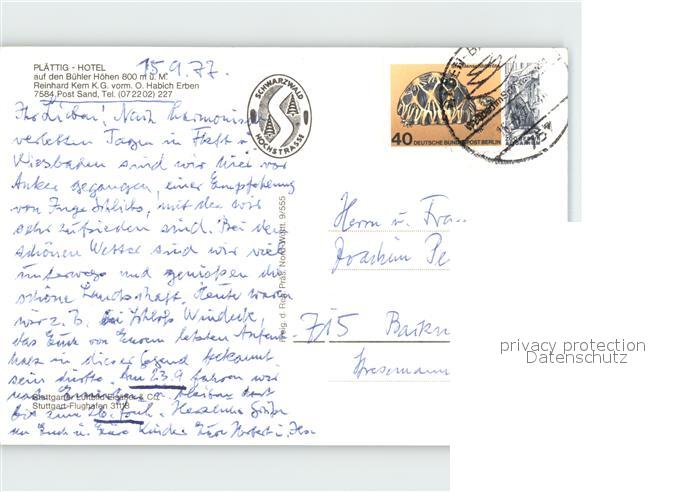 15.9.77.
PLÄTTIG - HOTEL
auf den Bühler Höhen 800 m ü. M.
Reinhard Kern K.G. vorm. O. Habich Erben
7584 Post Sand, Tel. (07 22 02) 227
SCHWARZWALD
HOCHSTRASSE
40
DEUTSCHE BUNDESPOST BERLIN
Ihr Lieben! Nach harmonisch
verlebten Tagen in
Wiesbaden sind wir hier vor
Anker gegangen, einer Empfehlung
von Inge, mit der wir
sehr zufrieden sind. Bei dem
schönen Wetter sind wir viel
unterwegs und genießen die
schöne Landschaft. Heute waren
wir z. B. bei Schloß Windeck,
das Euch von Eurem letzten Aufent-
halt in dieser Gegend bekannt
sein dürfte. Am 23.9 fahren wir
nach und bleiben dort
bis zum 26. früh. Herzliche Grüße
an Euch u. Eure Kinder Eure Herbert u.
Stuttgarter Luftbild Elsäßer & Co.
Stuttgart-Flughafen 31118
Freig. d. Reg. Präs. Nord-Württ. 9/
Herrn u. Frau
Joachim Pe
715 Backn
Stresemann
privacy protection
Datenschutz